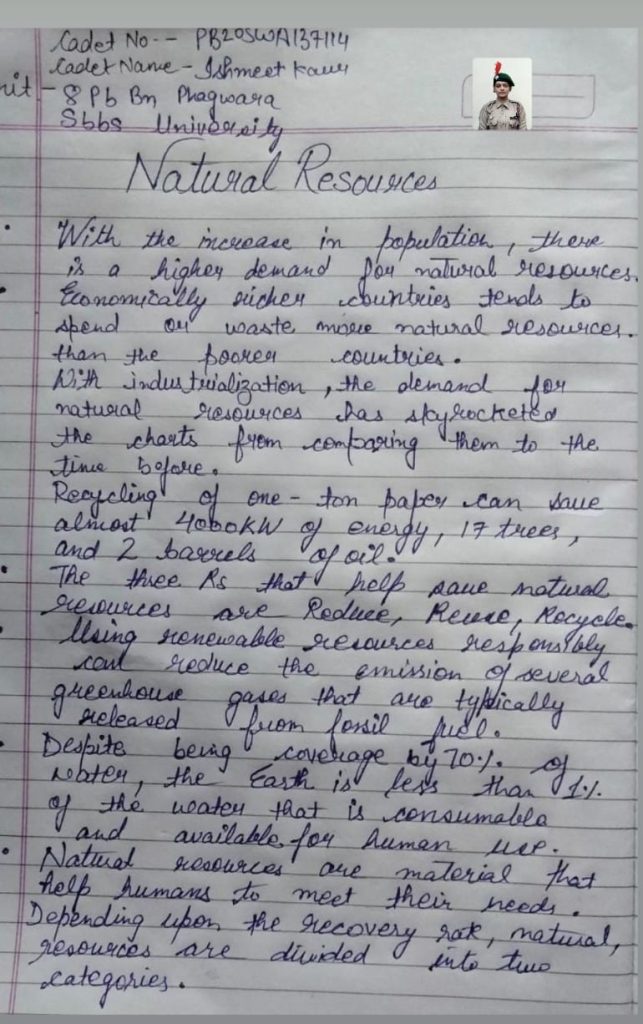 Cadet No - PB20SWA137114
Cadet Name - Ishmeet Kaur
nit - 8 Pb Bn Phagwara
Sbbs University
Natural Resources
With the increase in population, there
is a higher demand for natural resources.
Economically richer countries tends to
spend or waste more natural resources.
than the poorer countries.
With industrialization, the demand for
natural resources has skyrocketed
the charts from comparing them to the
time before.
Recycling of one-ton paper can save
almost 4000KW of energy, 17 trees,
and 2 barrels of oil.
The three Rs that help save natural
resources are Reduce, Reuse, Recycle.
Using renewable resources responsibly
can reduce the emission of several
greenhouse gases that are typically
released from fossil fuel.
Despite being coverage by 70% of
water, the Earth is less than 1%
of the water that is consumable
and available for human use.
Natural resources are material that
help humans to meet their needs.
Depending upon the recovery rate, natural,
resources are divided into two
categories.